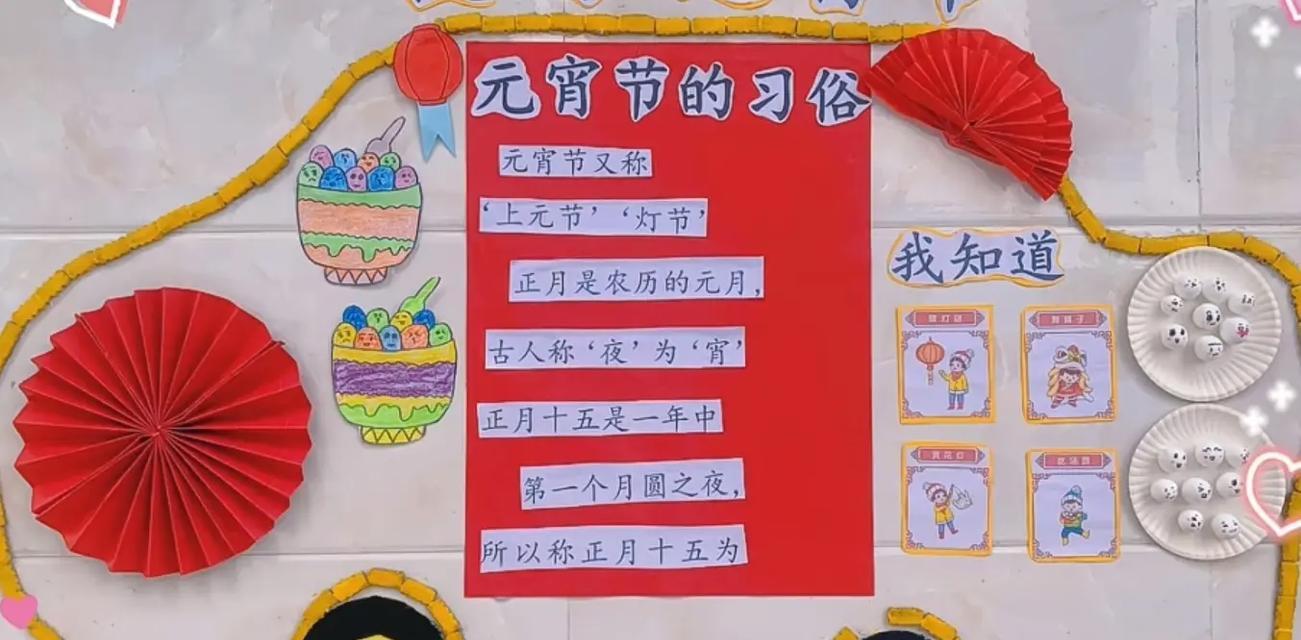 元宵节的习俗
元宵节又称
‘上元节’‘灯节’
正月是农历的元月，
古人称‘夜’为‘宵’
正月十五是一年中
第一个月圆之夜，
所以称正月十五为
我知道
舞狮子
赏花灯
吃汤圆